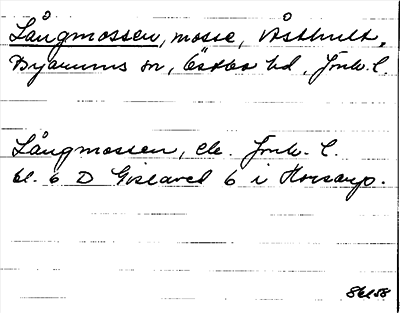 Långmossen, mosse, Västhult,
Byarums sn, Östbo hd, Jönk. l.
Långmossen, ek. Jönk. l.
bl. 6 D Gislaved 6 i Horsarp.